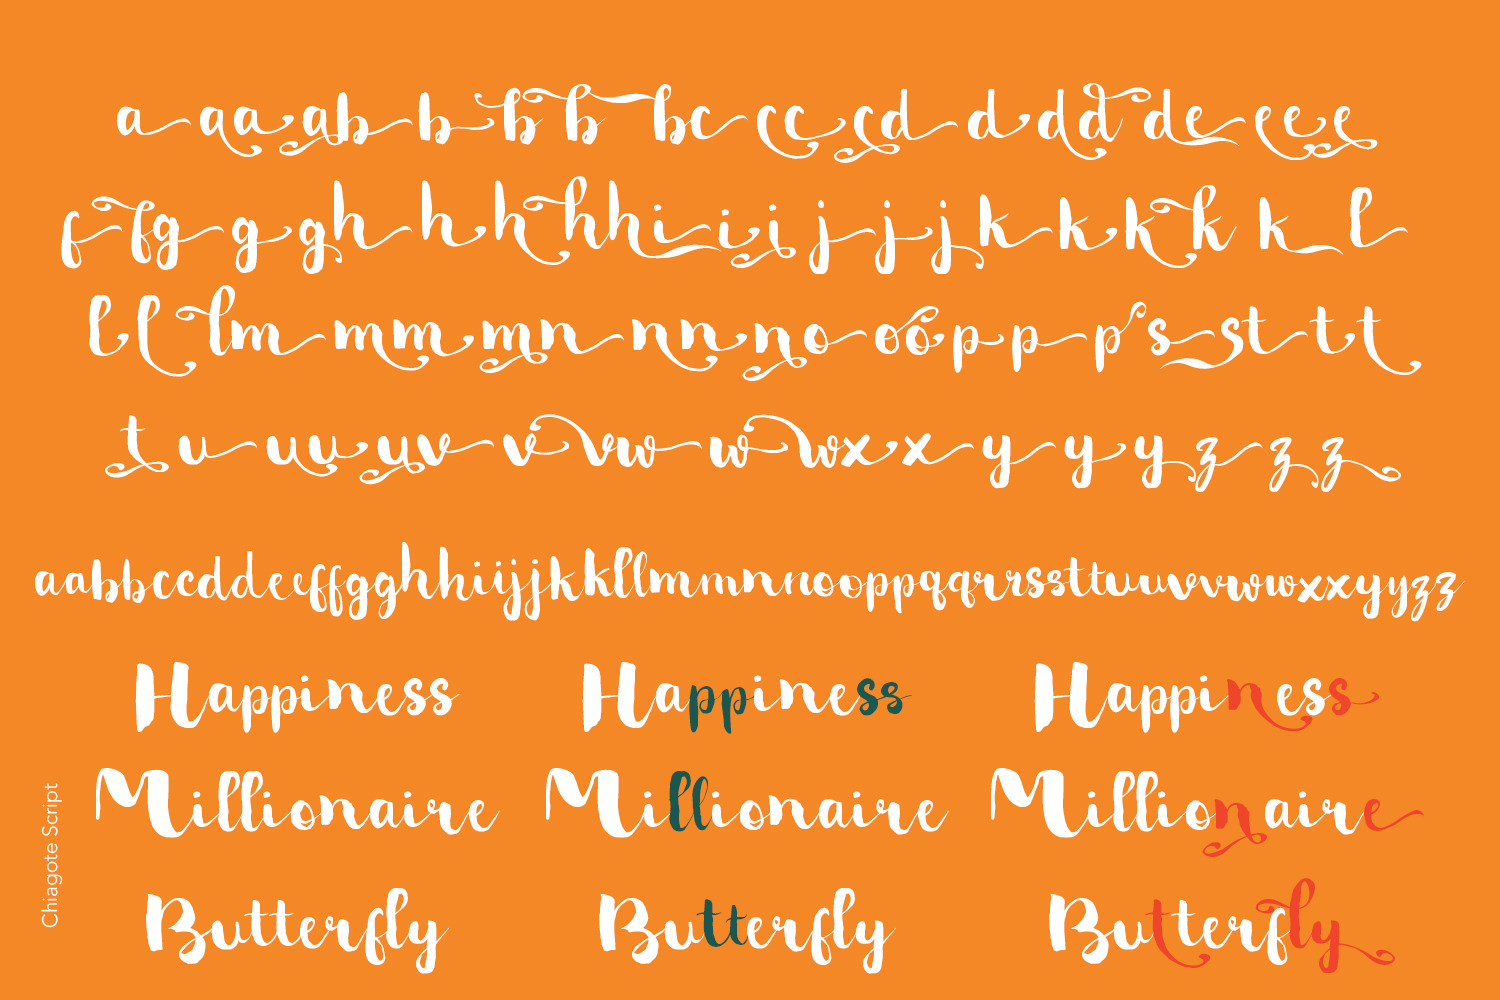 a aa ab b b b bc cc cd d dd de eee
f fg g gh h h hhi i i j j j k k k k k l
l l lm mm mn nn no oo p p p s st t t
t u uu uv v vw w wx x y y y z z z
aabbccddeeffgghhiijjkkllmmnnooppqqrrssttuuvvwwxxyyzz
Happiness Happiness Happiness
Millionaire Millionaire Millionaire
Butterfly Butterfly Butterfly
Chiagote Script